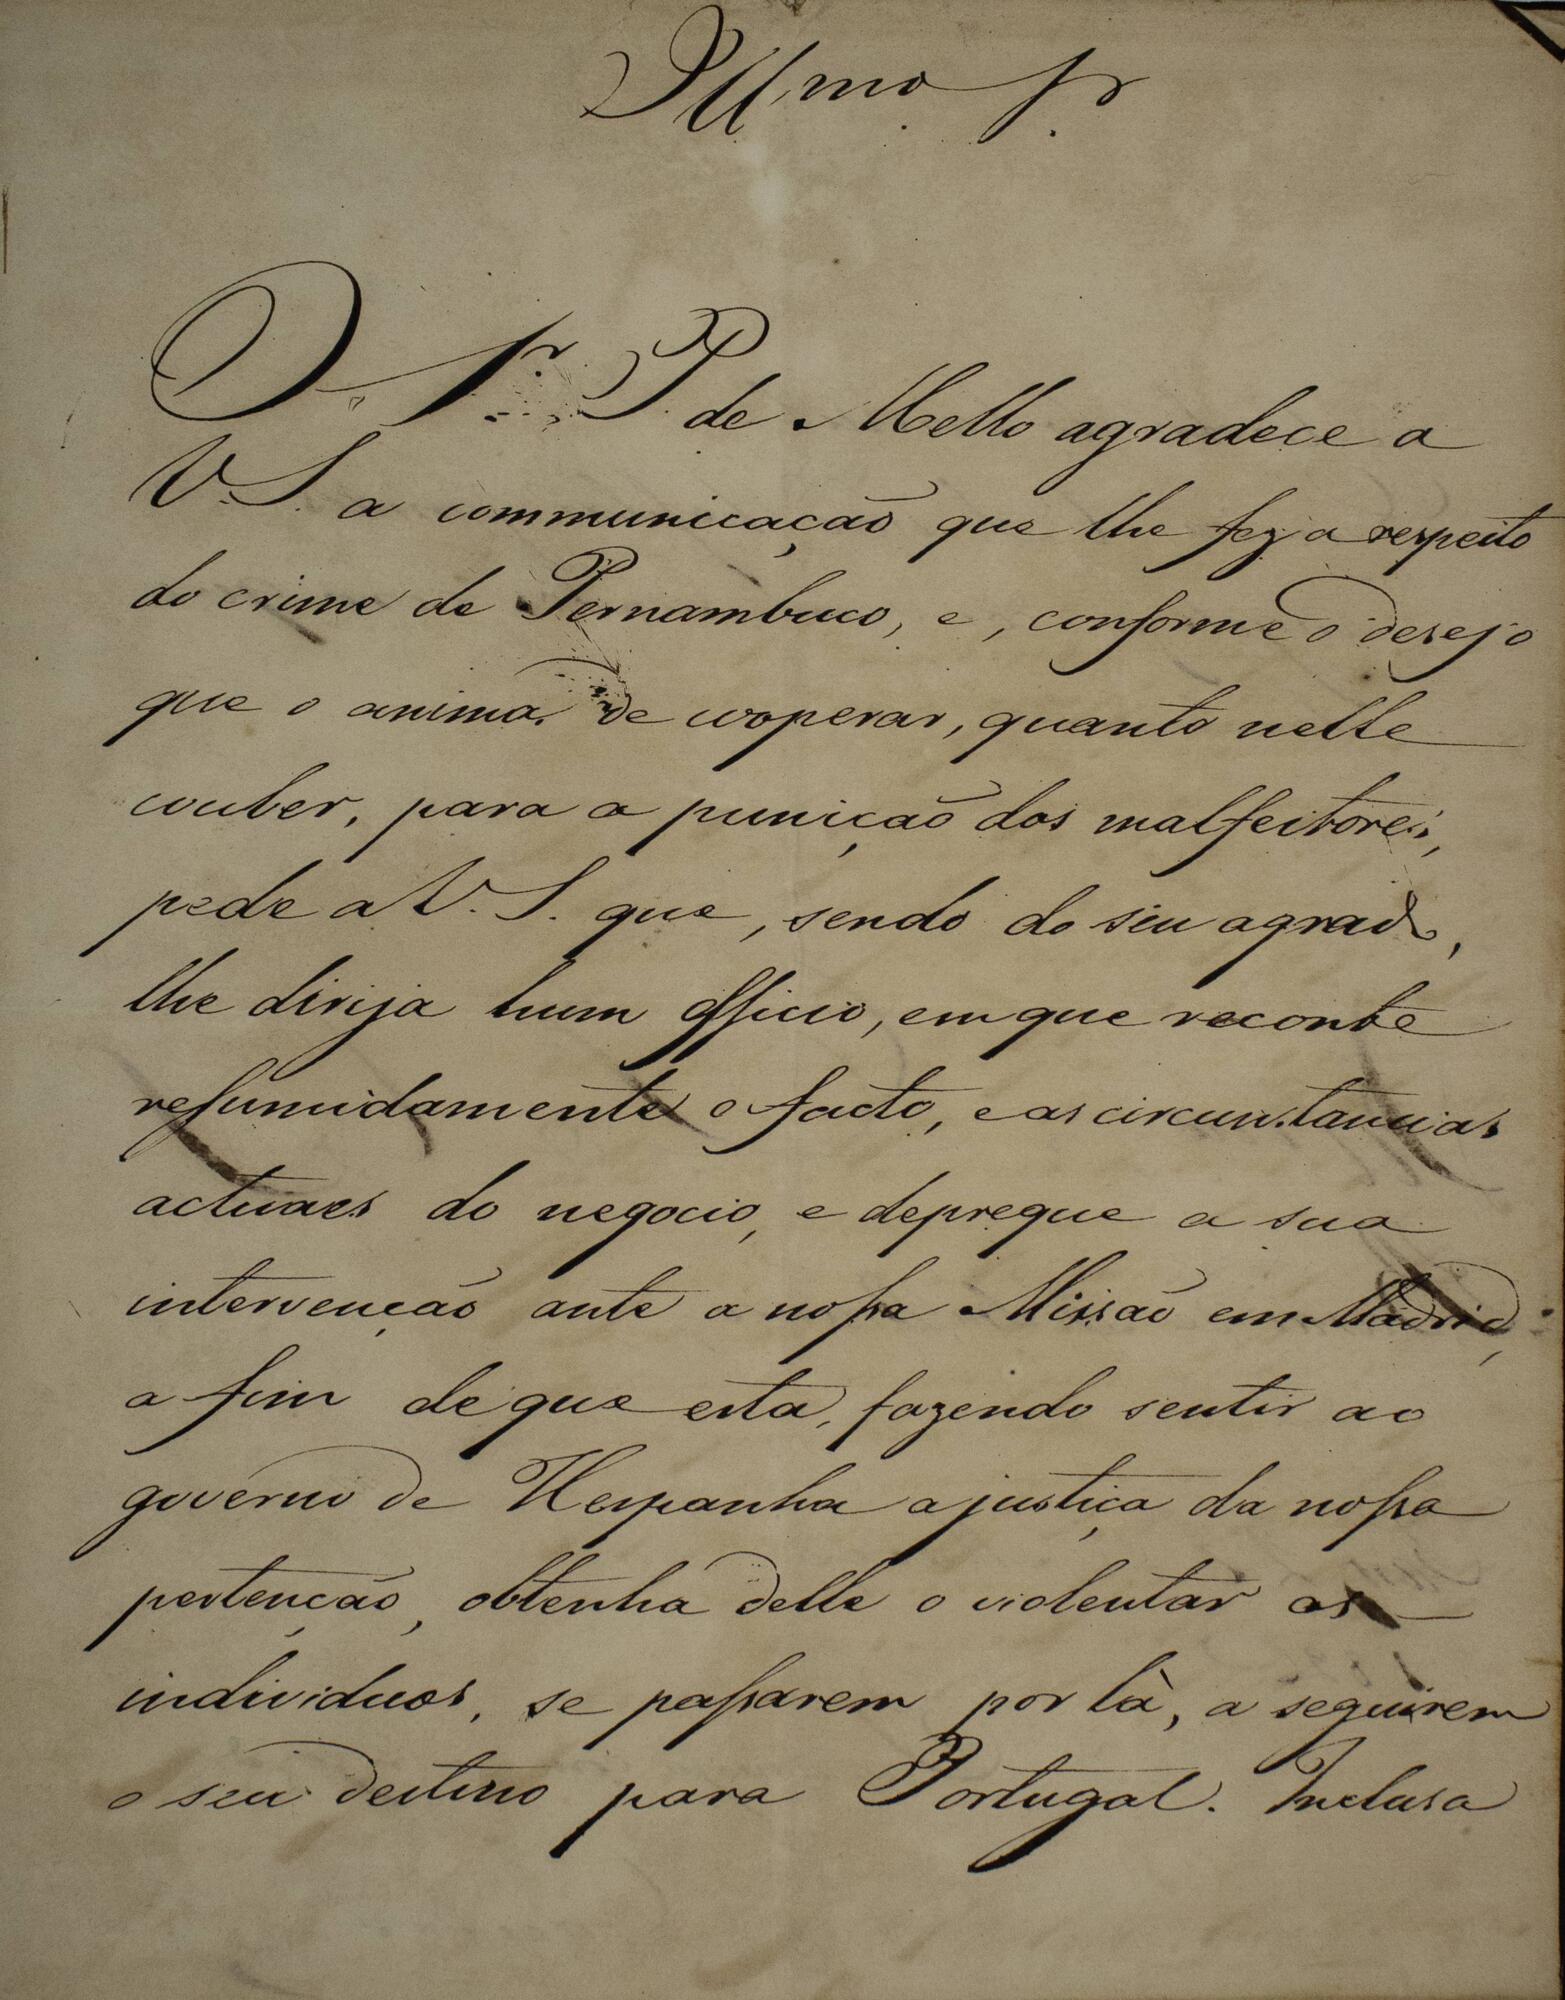 Ill.mo Sr.
O Sr. P. de Mello agradece a
V. S. a communicação que lhe fez a respeito
do crime de Pernambuco, e, conforme o desejo
que o anima de cooperar, quanto nelle
couber, para a punição dos malfeitores,
pede a V. S. que, sendo do seu agrado,
lhe dirija hum officio, em que reconte
resumidamente o facto, e as circunstancias
actuaes do negocio, e depreque a sua
intervenção ante a nossa Missão em Madrid,
a fim de que esta, fazendo sentir ao
governo de Hespanha a justiça da nossa
pertenção, obtenha delle o violentar os
individuos, se passarem por là, a seguirem
o seu destino para Portugal. Inclusa